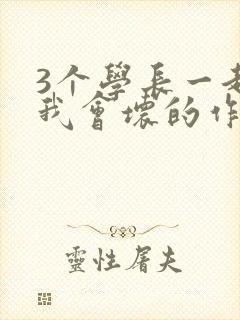 3个學長一起
我會壞的作
靈性屠夫